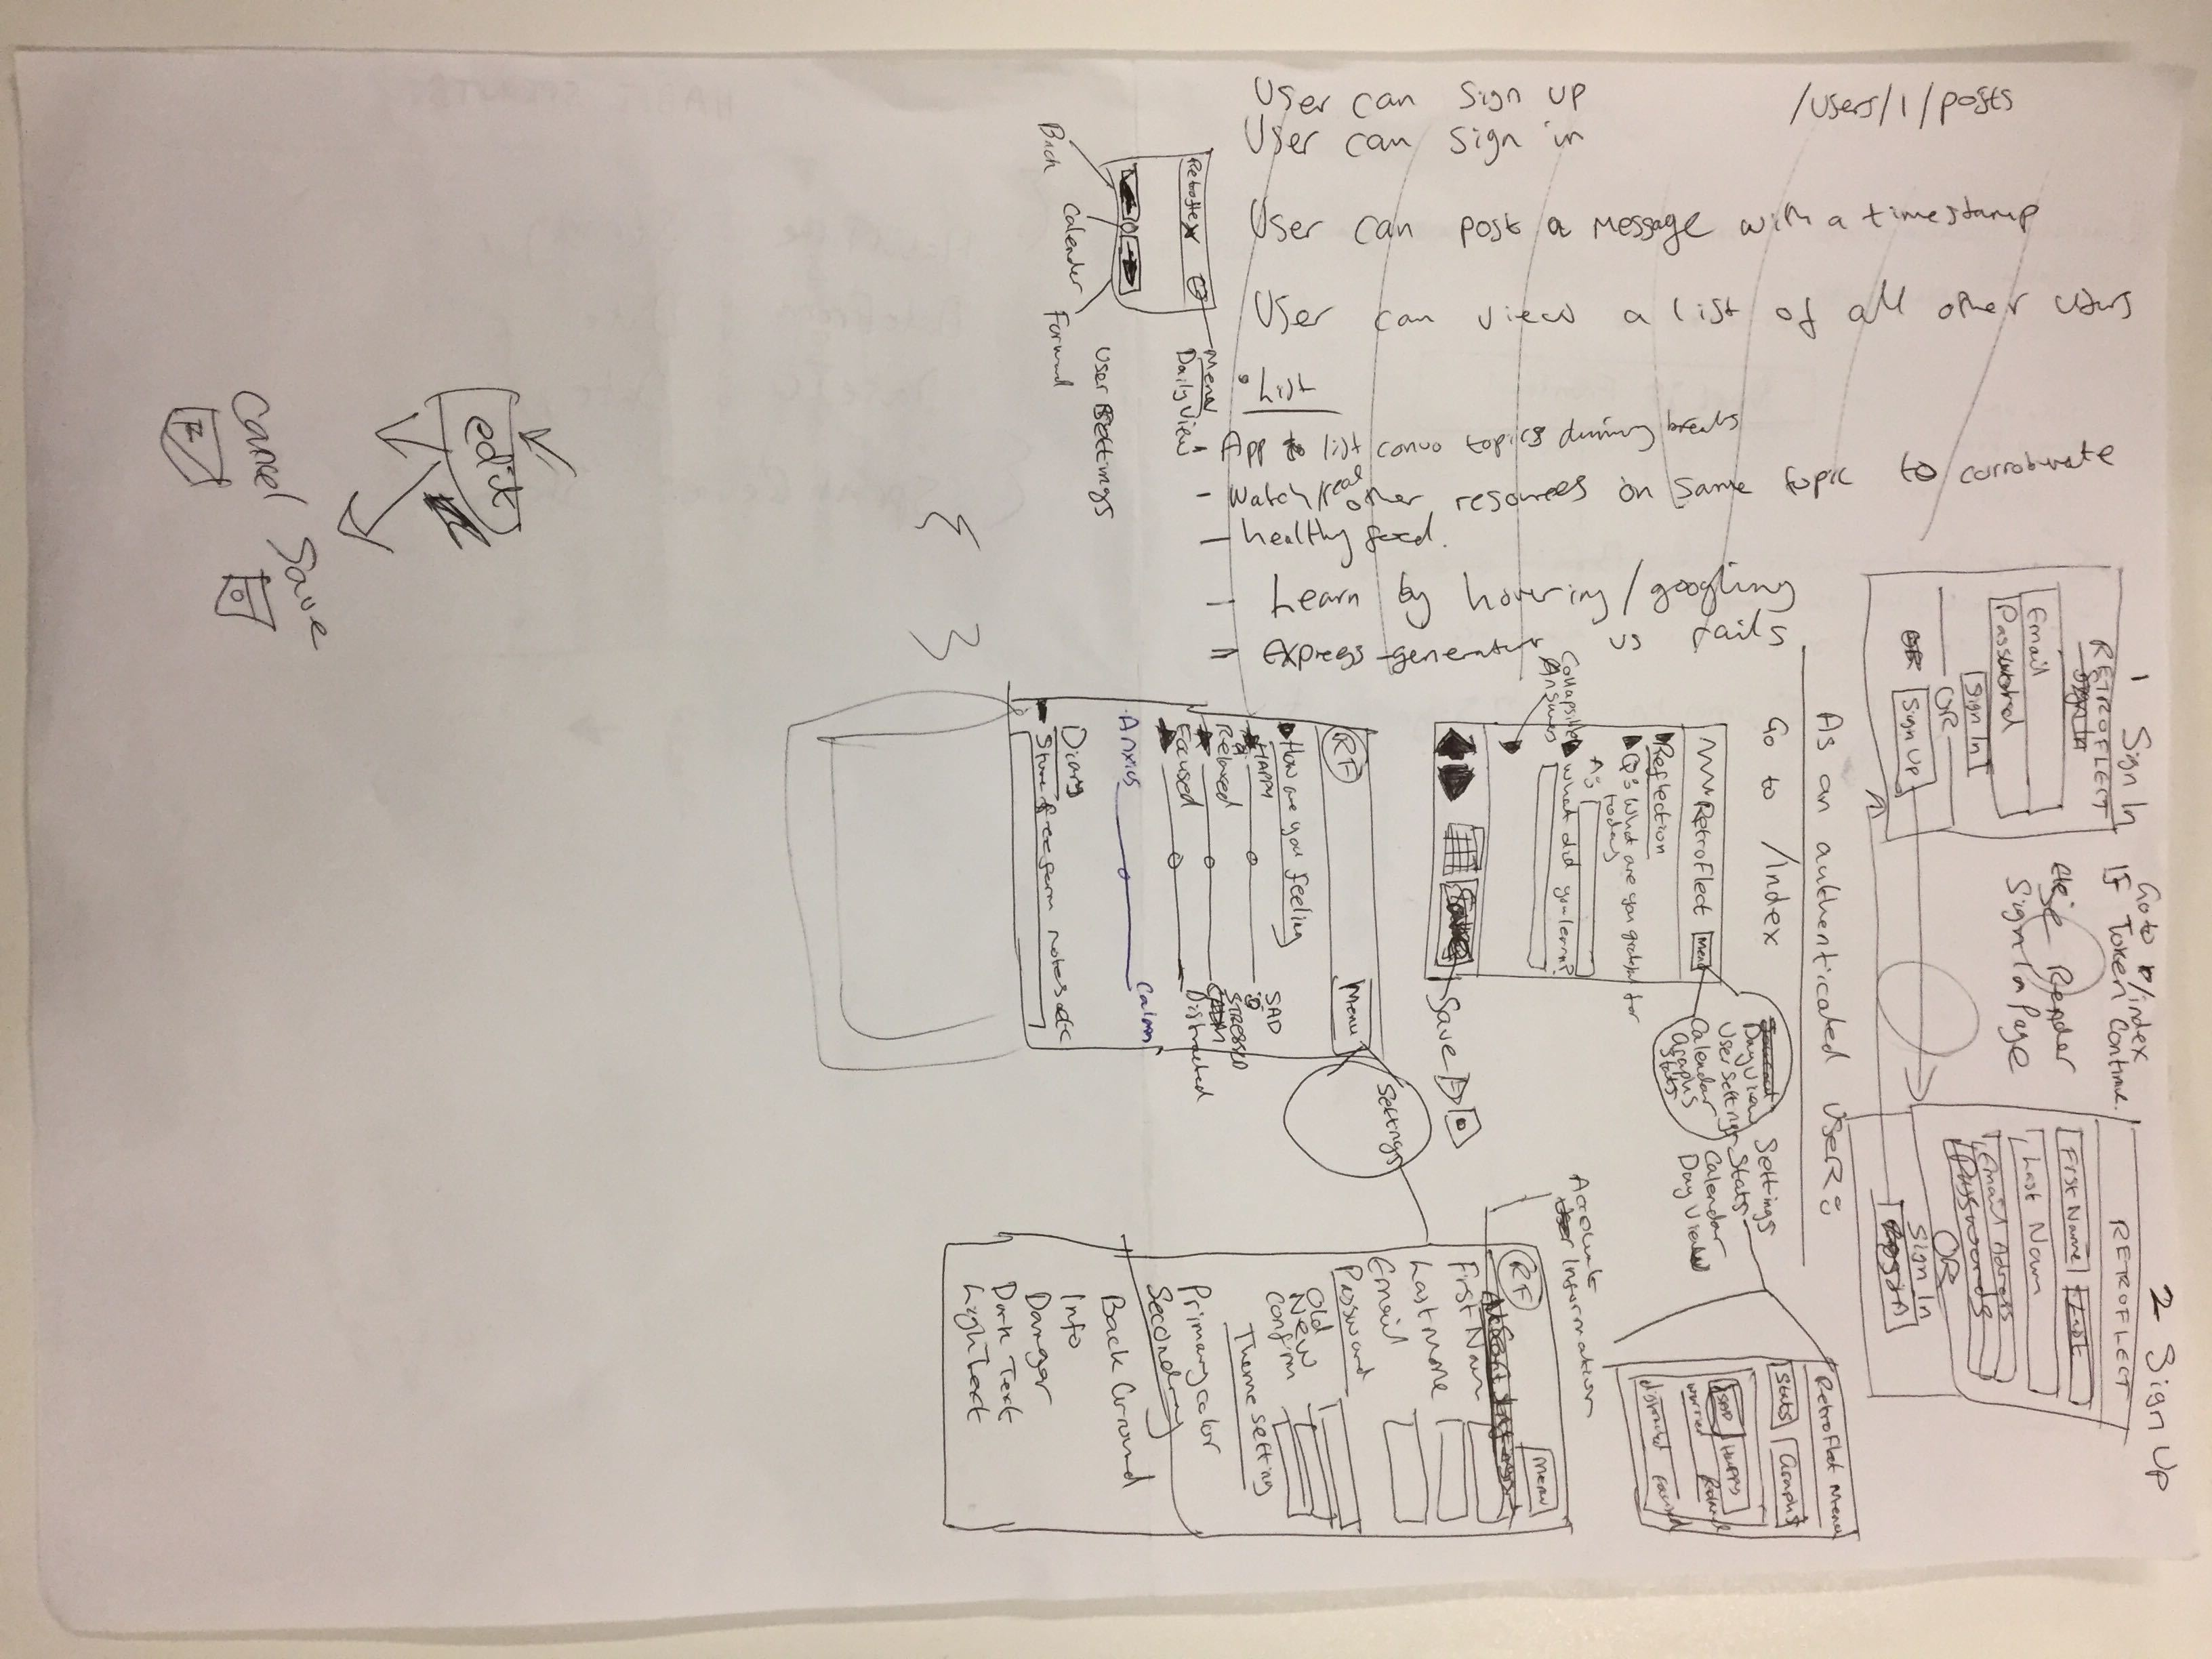 User can sign up
User can sign in
/users/1/posts
User can post a message with a timestamp
User can view a list of all other users
List
- App to list convo topics during breaks
- Watch/read other resources on same topic to corroborate
- healthy food.
- Learn by hovering/googling
= Express-generator vs rails
Menu
Daily View
User Settings
Back
Calender
Forward
edit
Cancel
Save
1 Sign In
RETROFLECT
Email
Password
Sign In
OR
Sign Up
Go to /index
IF Token Continue.
else Render
Sign In Page
2 Sign Up
RETROFLECT
First Name
Last
Last Nam
Email Address
Passwords
OR
Sign In
As an authenticated USER:
Go to /Index
RetroFlect
Menu
Reflection
Q: What are you grateful for
today
A:
What did you learn?
Collapsible
Answers
Save
Day View
User Settings
Calendar
Graphs
Stats
Settings
Stats
Calendar
Day View
Retroflect Menu
Stats
Graphs
SAD
Happy
worried
RF
Menu
How are you feeling
HAPPY
SAD
Relaxed
STRESSED
Focused
Distracted
Anxius
Calm
Diary
Store freeform notes etc
Settings
Account
Information
RF
Menu
First Nam
Last name
Email
Password
Old
New
Confirm
Theme Setting
Primary color
Secondary
Back Ground
Info
Danger
Dark Text
Light text